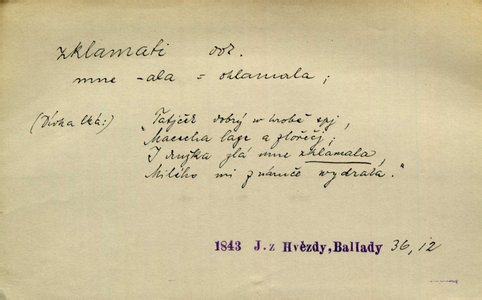 zklamati ooz.
mne -ala = oklamala;
(Dívka lká:) Tatjček dobrý w hrobě spj,
"Macecha lage a zlořečj;
I družka zlá mne zklamala,
Milého mi z náruče wydrala."
1843 J. z Hvězdy, Ballady 36, 12